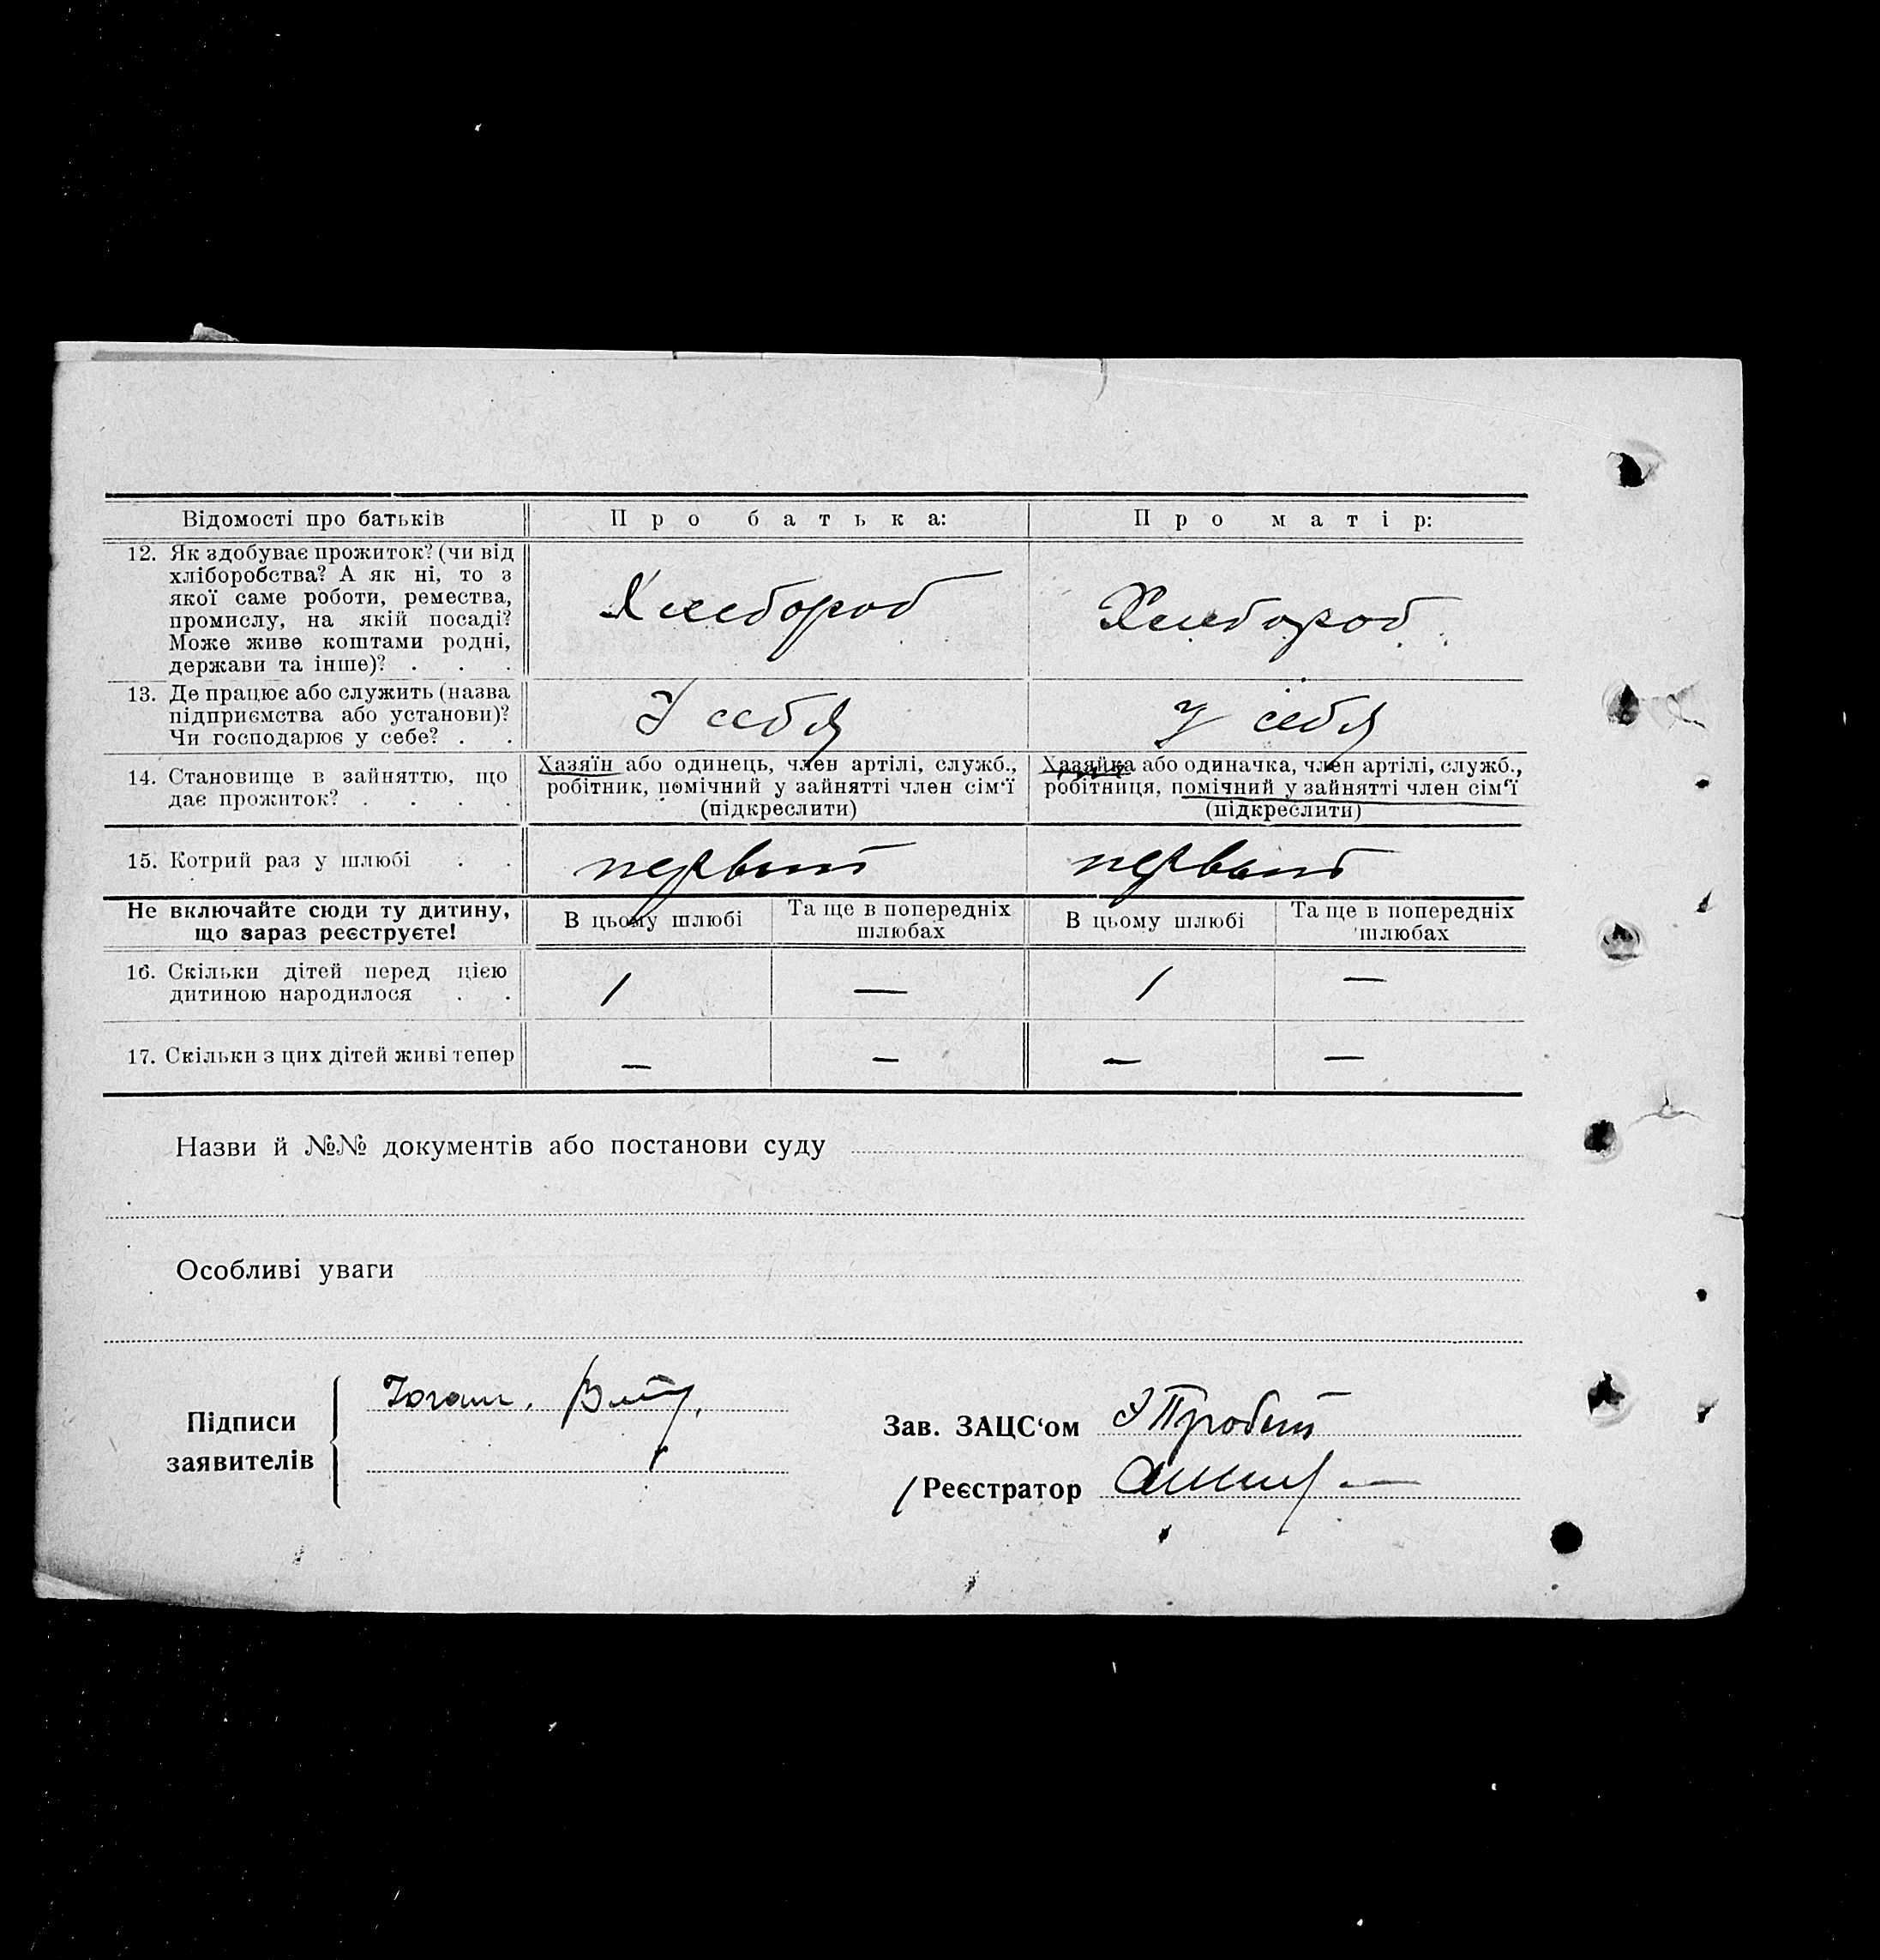 Відомості про батьків Про батька: Про матір:
12. Як здобуває прожиток? (чи від
хліборобства? А як ні, то з
якої саме роботи, ремества,
промислу, на якій посаді?
Може живе коштами родні,
держави та інше)? . . .
Хлебороб Хлебороб
13. Де працює або служить (назва
підприємства або установи)?
Чи господарює у себе? . .
У себя У себя
14. Становище в зайняттю, що
дає прожиток? . . . .
Хазяїн або одинець, член артілі, служб.,
робітник, помічний у зайнятті член сім'ї
(підкреслити)
Хазяйка або одиначка, член артілі, служб.,
робітниця, помічний у зайнятті член сім'ї
(підкреслити)
15. Котрий раз у шлюбі . . первый первый
Не включайте сюди ту дитину,
що зараз реєструєте!
В цьому шлюбі Та ще в попередніх
шлюбах
В цьому шлюбі Та ще в попередніх
шлюбах
16. Скільки дітей перед цією
дитиною народилося . .
1 — 1 —
17. Скільки з цих дітей живі тепер — — — —
Назви й №№ документів або постанови суду
Особливі уваги
Підписи
заявителів
Зав. ЗАЦС'ом
Реєстратор